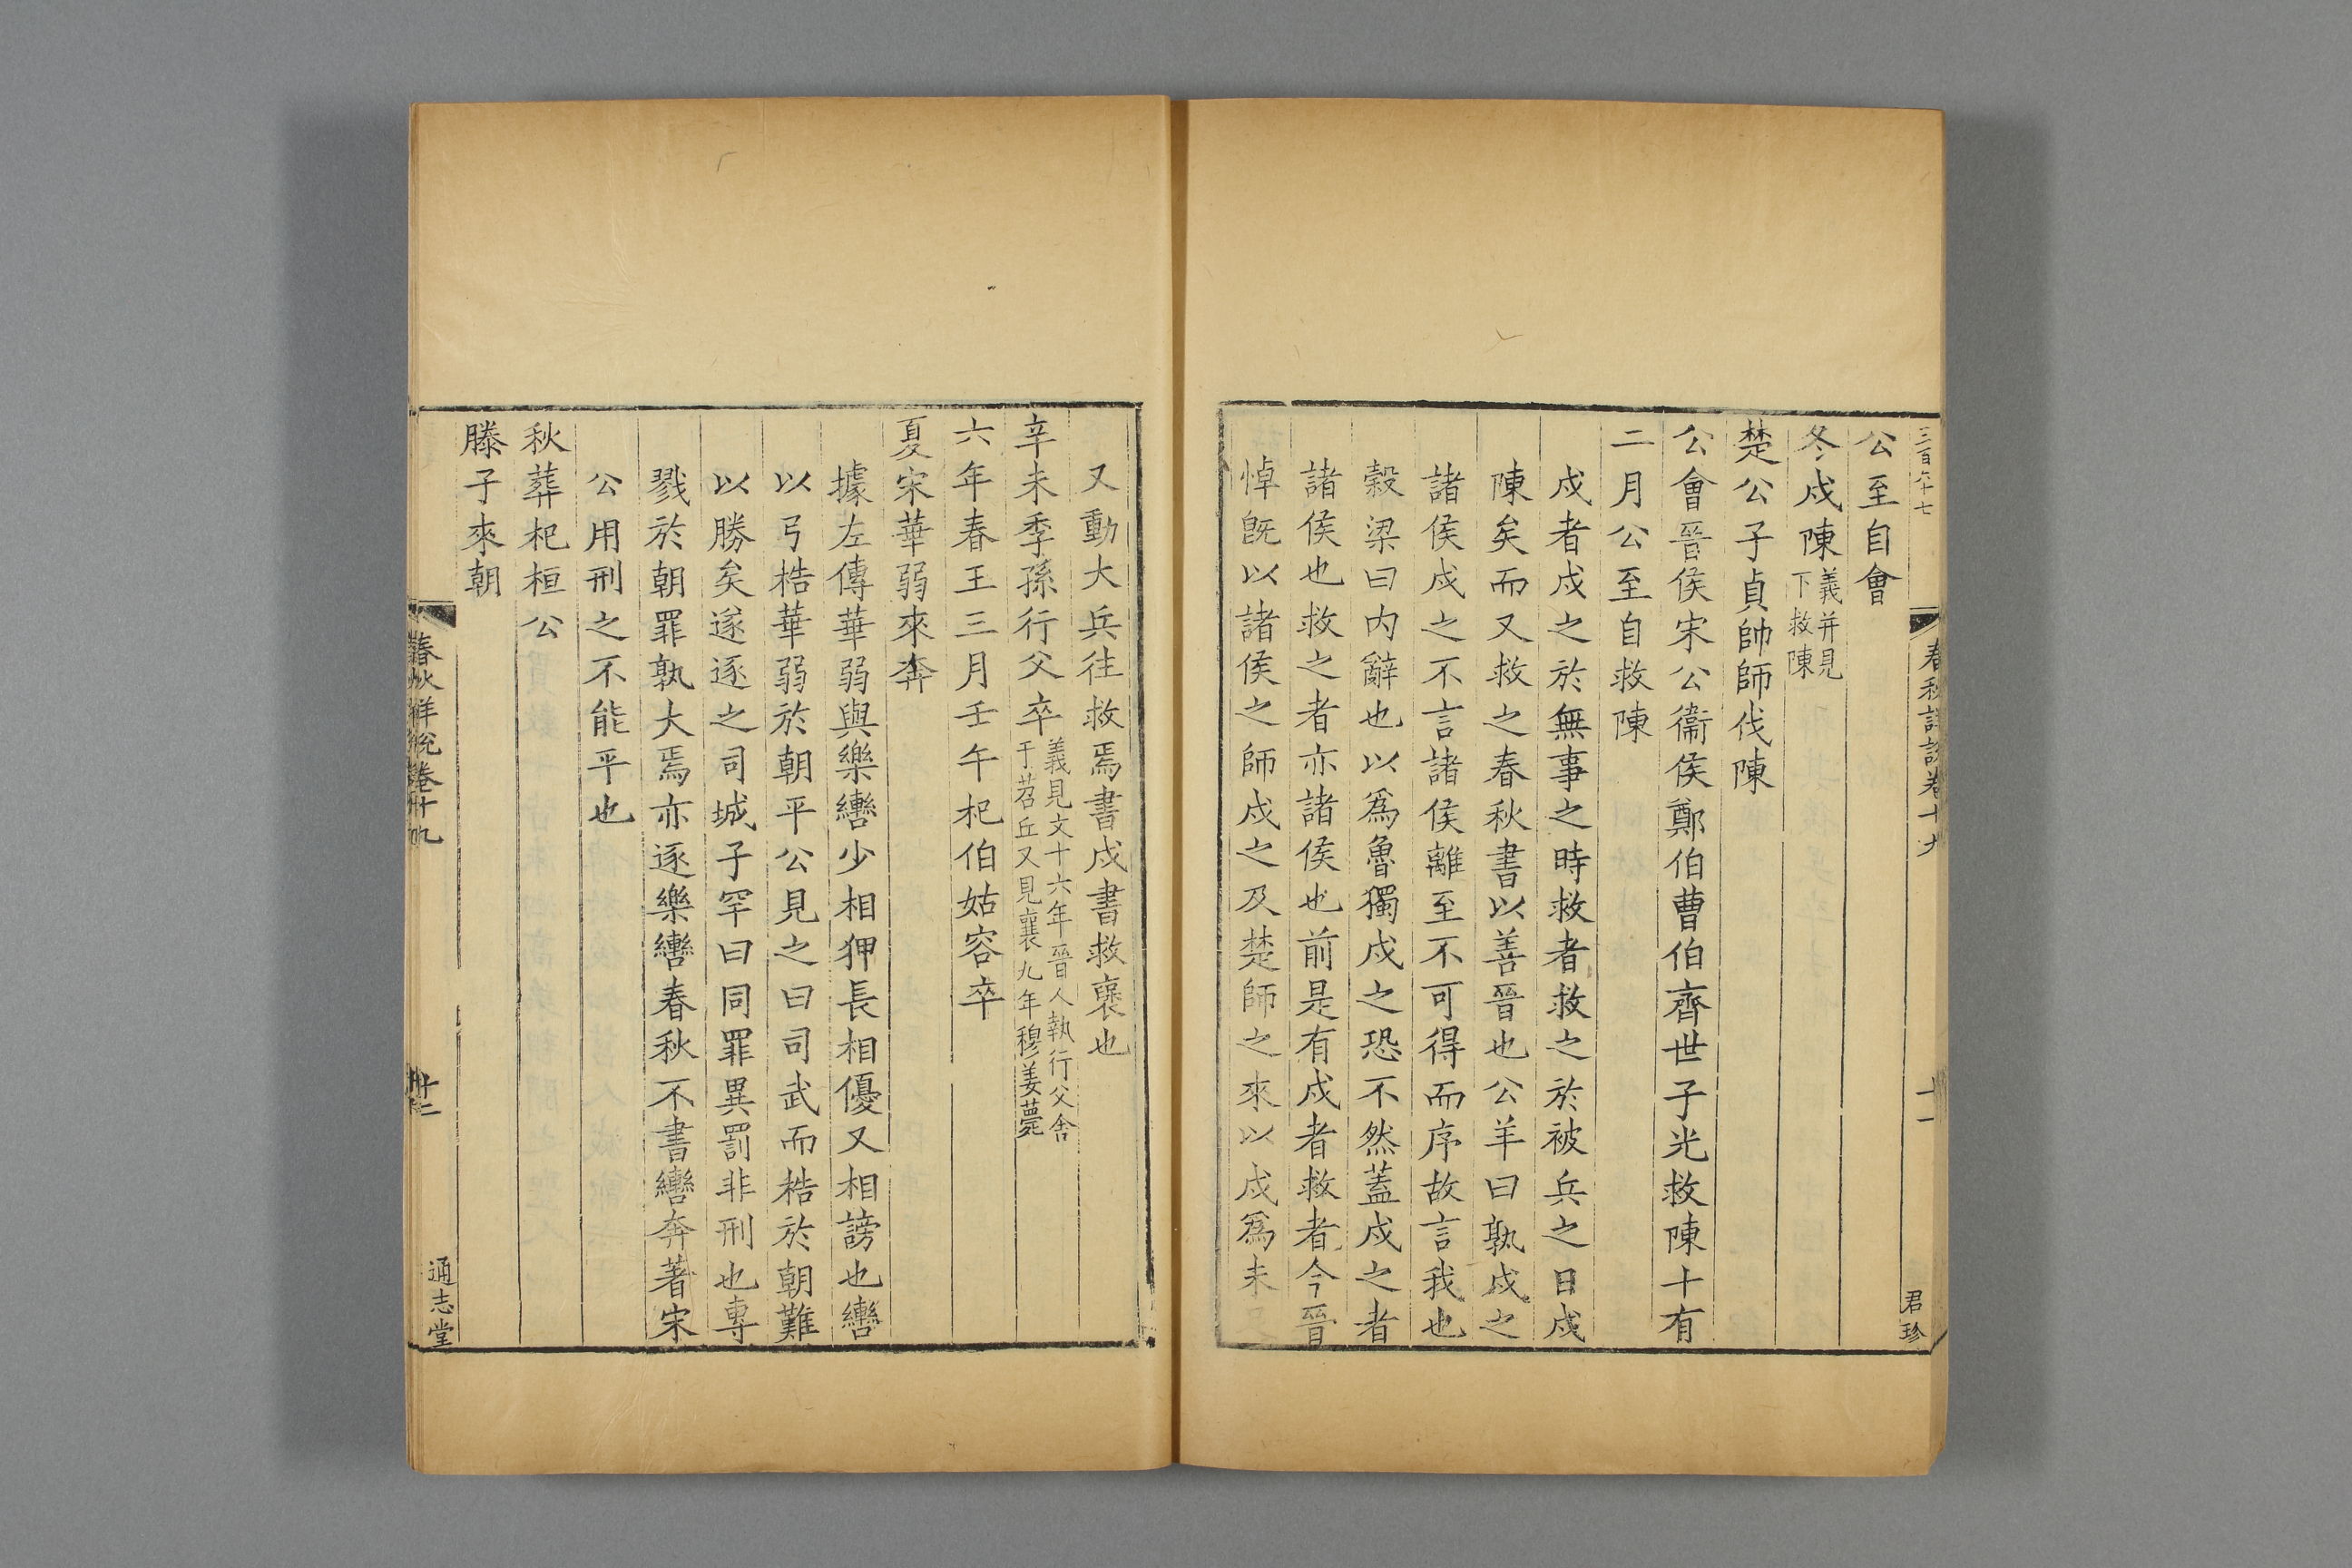 三百六十七
春秋詳說卷十九
十一
君珍
公至自會
冬戍陳義并見下救陳
楚公子貞帥師伐陳
公會晉侯宋公衞侯鄭伯曹伯齊世子光救陳十有
二月公至自救陳
戍者戍之於無事之時救者救之於被兵之日戍
陳矣而又救之春秋書以善晉也公羊曰孰戍之
諸侯戍之不言諸侯離至不可得而序故言我也
穀梁曰內辭也以爲魯獨戍之恐不然蓋戍之者
諸侯也救之者亦諸侯也前是有戍者救者今晉
悼旣以諸侯之師戍之及楚師之來以戍爲未
又動大兵往救焉書戍書救襃也
辛未季孫行父卒義見文十六年晉人執行父舍于苕丘又見襄九年穆姜薨
六年春王三月壬午杞伯姑容卒
夏宋華弱來奔
據左傳華弱與樂轡少相狎長相優又相謗也轡
以弓梏華弱於朝平公見之曰司武而梏於朝難
以勝矣遂逐之司城子罕曰同罪異罰非刑也專
戮於朝罪孰大焉亦逐樂轡春秋不書轡奔著宋
公用刑之不能平也
秋葬杞桓公
滕子來朝
春秋詳說卷十九
十二
通志堂